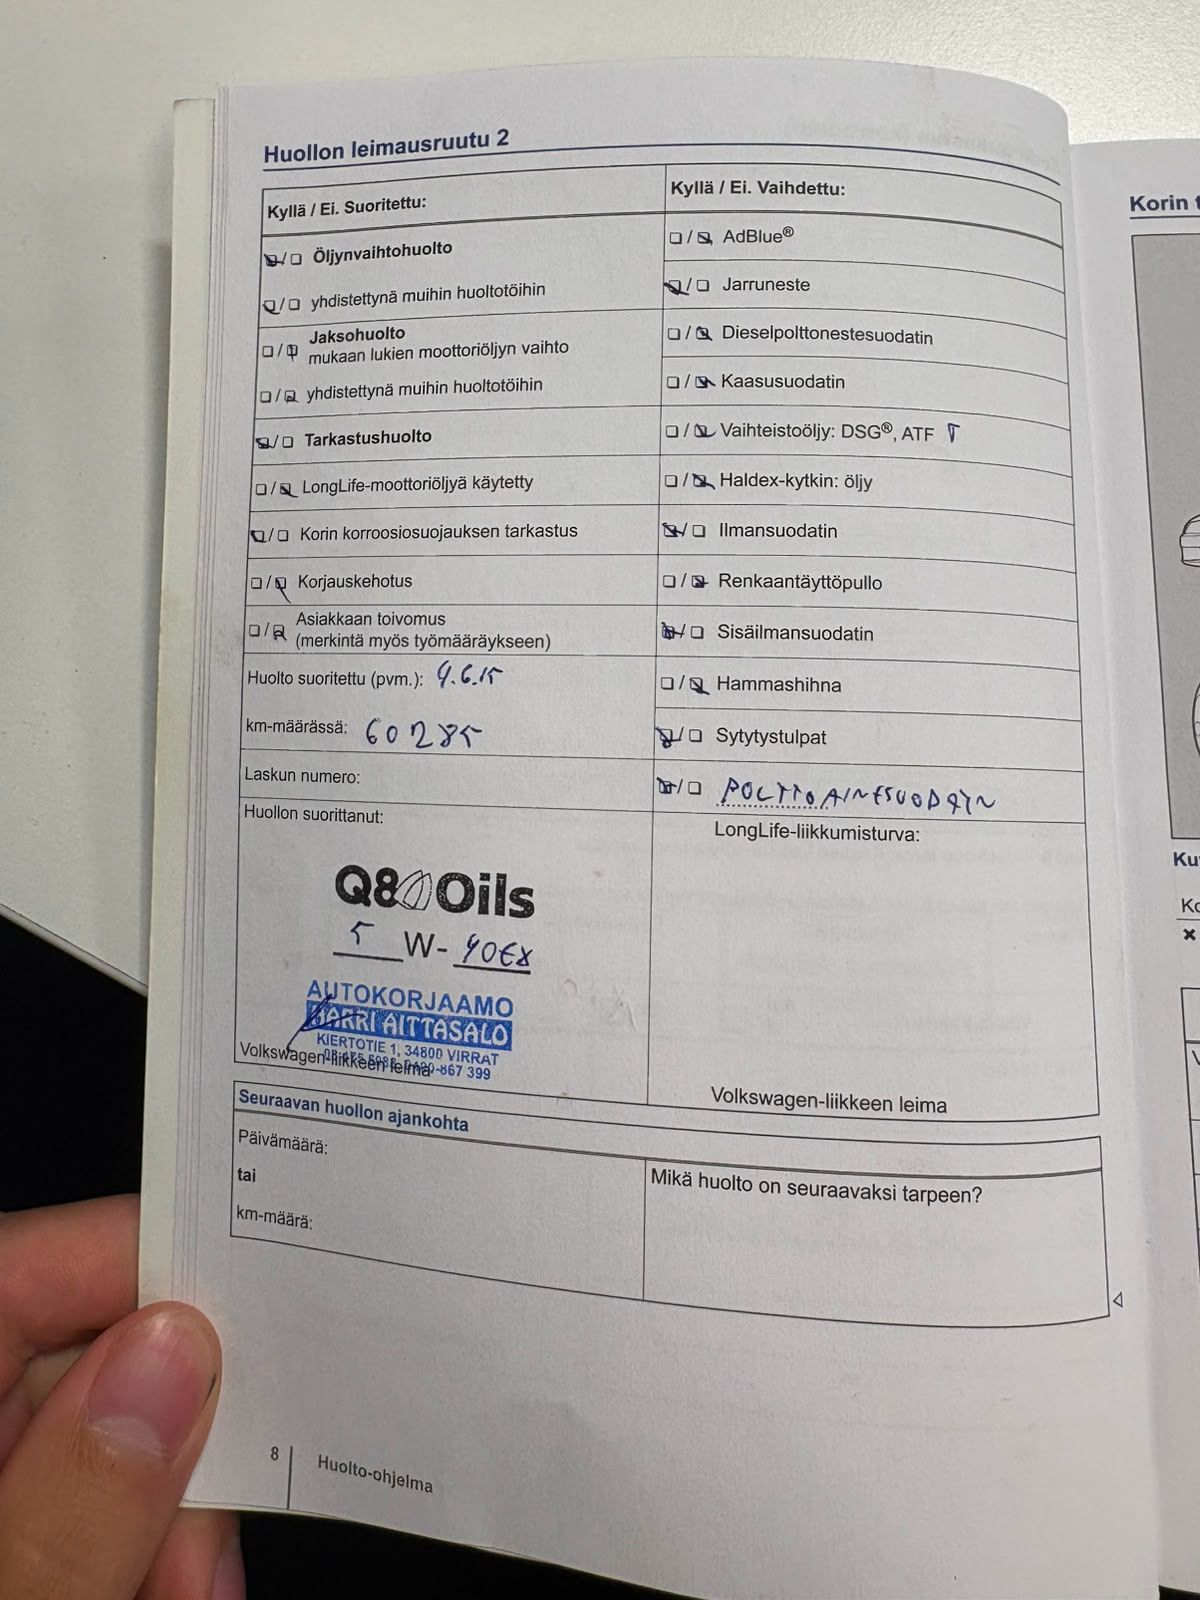 Huollon leimausruutu 2
Kyllä / Ei. Suoritettu:
Öljynvaihtohuolto
yhdistettynä muihin huoltotöihin
Jaksohuolto
mukaan lukien moottoriöljyn vaihto
yhdistettynä muihin huoltotöihin
Tarkastushuolto
LongLife-moottoriöljyä käytetty
Korin korroosiosuojauksen tarkastus
Korjauskehotus
Asiakkaan toivomus
(merkintä myös työmääräykseen)
Huolto suoritettu (pvm.): 4.6.15
km-määrässä: 60285
Laskun numero:
Huollon suorittanut:
Q8 Oils
5 W- 40 EX
AUTOKORJAAMO
HARRI AITTASALO
KIERTOTIE 1, 34800 VIRRAT
867 399
Volkswagen-liikkeen leima
Kyllä / Ei. Vaihdettu:
AdBlue®
Jarruneste
Dieselpolttonestesuodatin
Kaasusuodatin
Vaihteistoöljy: DSG®, ATF
Haldex-kytkin: öljy
Ilmansuodatin
Renkaantäyttöpullo
Sisäilmansuodatin
Hammashihna
Sytytystulpat
POLTTOAINESUODATIN
LongLife-liikkumisturva:
Volkswagen-liikkeen leima
Seuraavan huollon ajankohta
Päivämäärä:
tai
km-määrä:
Mikä huolto on seuraavaksi tarpeen?
8
Huolto-ohjelma
Korin